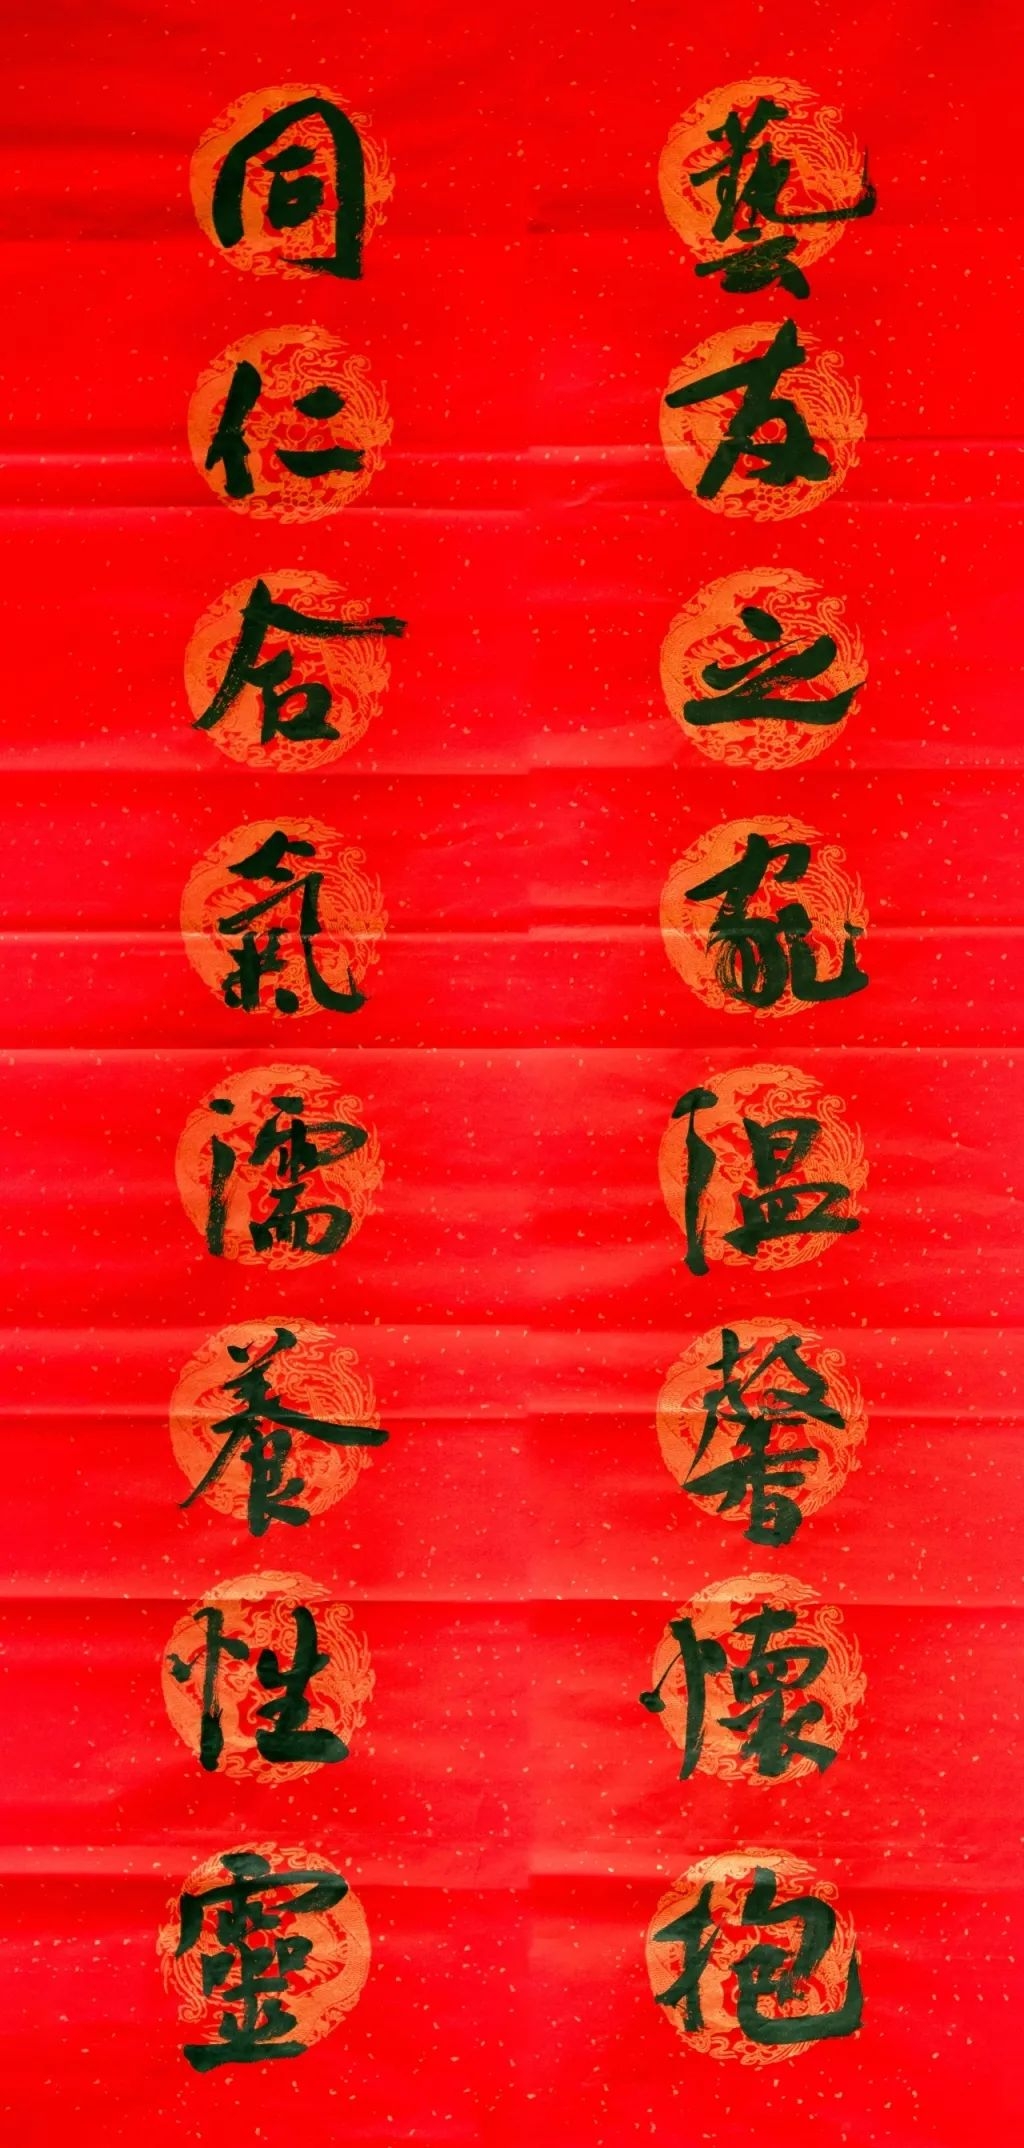 藝友之家温馨懷抱
同仁合氣濡養性靈